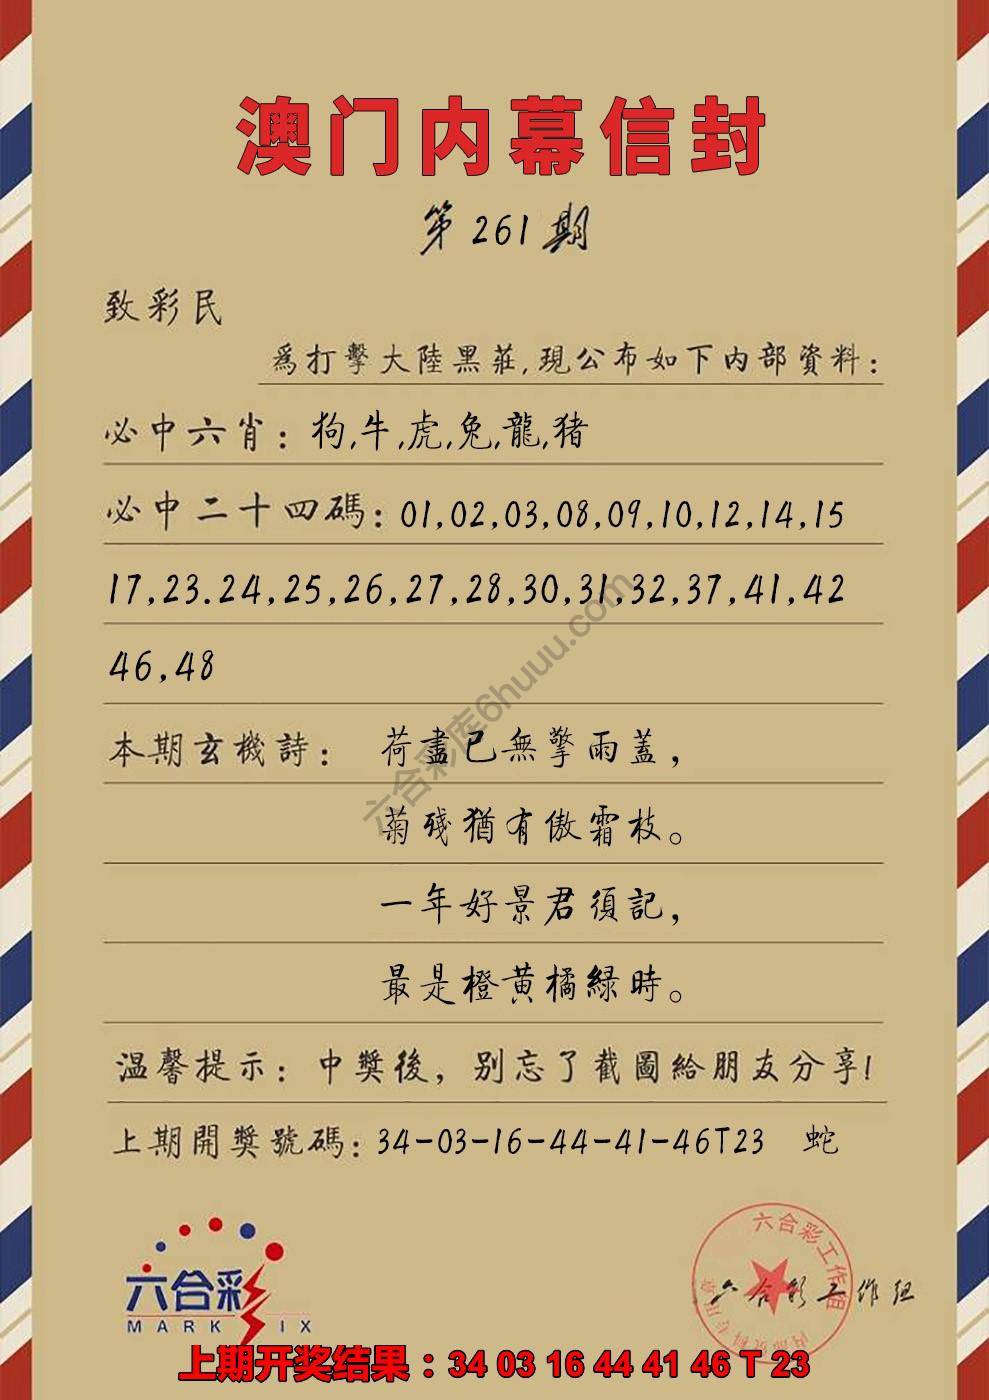 澳门内幕信封
第261期
致彩民
爲打擊大陸黑莊,現公布如下内部資料:
必中六肖: 狗,牛,虎,兔,龍,猪
必中二十四碼: 01,02,03,08,09,10,12,14,15
17,23.24,25,26,27,28,30,31,32,37,41,42
46,48
本期玄機詩: 荷盡已無擎雨蓋,
菊殘猶有傲霜枝。
一年好景君須記,
最是橙黄橘緑時。
温馨提示: 中獎後,别忘了截圖給朋友分享!
上期開獎號碼: 34-03-16-44-41-46T23 蛇
六合彩库6huuu.com
六合彩
MARK SIX
六合彩工作组
六合彩工作组
内部资料专用章
上期开奖结果：34 03 16 44 41 46 T 23